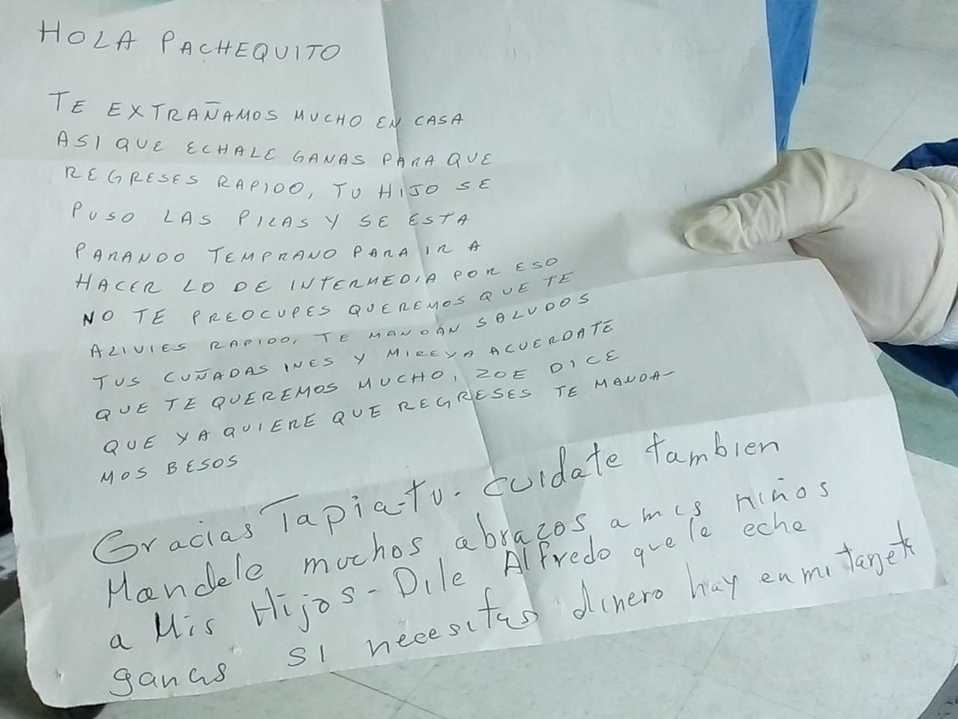 HOLA PACHEQUITO
TE EXTRAÑAMOS MUCHO EN CASA
ASI QUE ECHALE GANAS PARA QUE
REGRESES RAPIDO, TU HIJO SE
PUSO LAS PILAS Y SE ESTA
PARANDO TEMPRANO PARA IR A
HACER LO DE INTERMEDIA POR ESO
NO TE PREOCUPES QUEREMOS QUE TE
ALIVIES RAPIDO, TE MANDAN SALUDOS
TUS CUÑADAS INES Y MIREYA ACUERDATE
QUE TE QUEREMOS MUCHO, ZOE DICE
QUE YA QUIERE QUE REGRESES TE MANDA-
MOS BESOS
Gracias Tapia-tu. cuidate tambien
Mandele muchos abrazos a mis niños
a Mis Hijos - Dile Alfredo que le eche
ganas si necesitas dinero hay en mi tarjeta